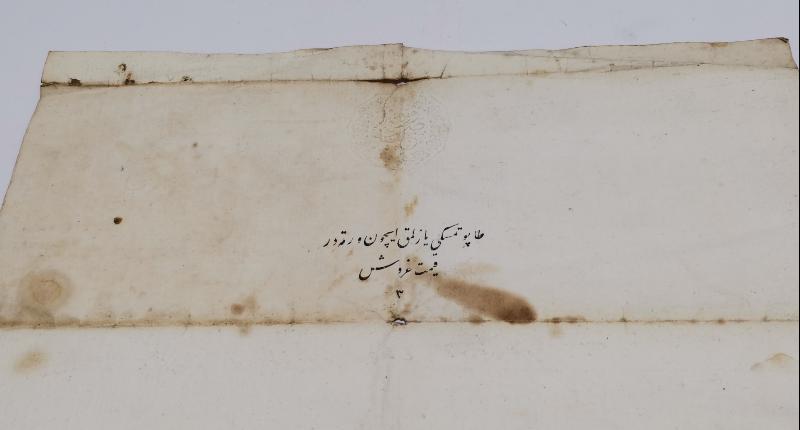 طاپو تمسكی یازلمق ایچون ورقه در
قیمت غروش
۳